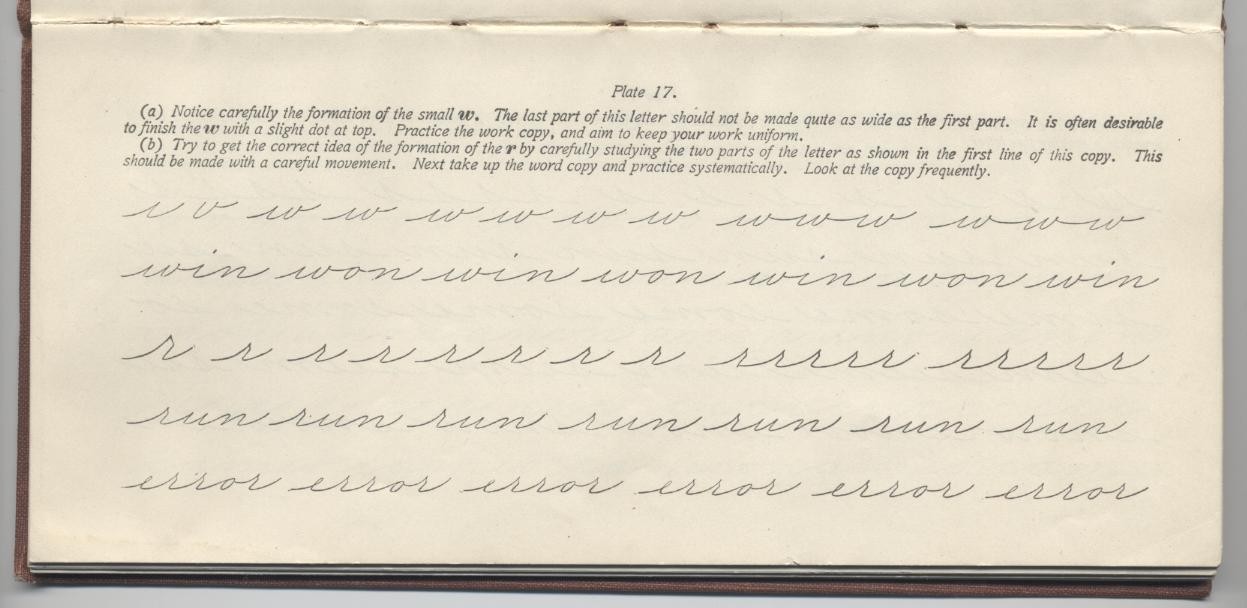 Plate 17.
(a) Notice carefully the formation of the small w. The last part of this letter should not be made quite as wide as the first part. It is often desirable
to finish the w with a slight dot at top. Practice the work copy, and aim to keep your work uniform.
(b) Try to get the correct idea of the formation of the r by carefully studying the two parts of the letter as shown in the first line of this copy. This
should be made with a careful movement. Next take up the word copy and practice systematically. Look at the copy frequently.
w w w w w w w w w w w w
win won win won win won win
r r r r r r r r rrrrr rrrrr
run run run run run run run
error error error error error error